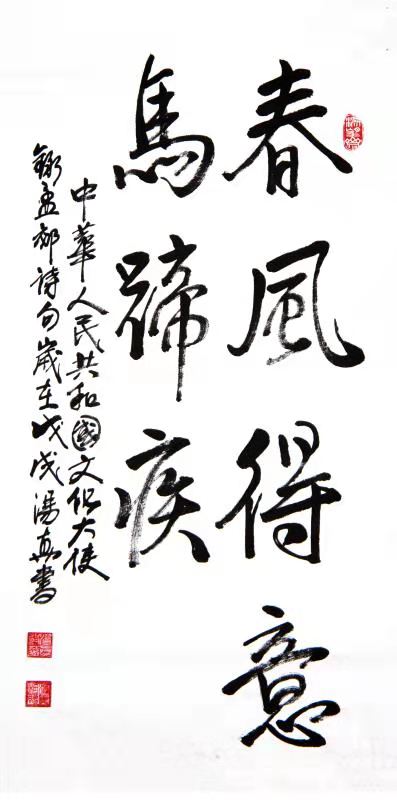 春風得意
馬蹄疾
中華人民共和國文化大使
錄孟郊詩句歲在戊戌湯真書